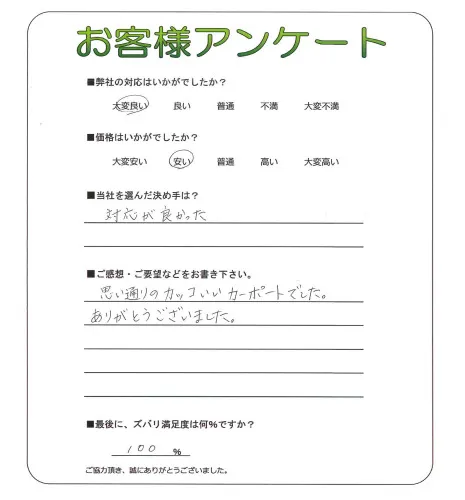 お客様アンケート
■弊社の対応はいかがでしたか？
大変良い 良い 普通 不満 大変不満
■価格はいかがでしたか？
大変安い 安い 普通 高い 大変高い
■当社を選んだ決め手は？
対応が良かった
■ご感想・ご要望などをお書き下さい。
思い通りのカッコいいカーポートでした。
ありがとうございました。
■最後に、ズバリ満足度は何％ですか？
100 ％
ご協力頂き、誠にありがとうございました。